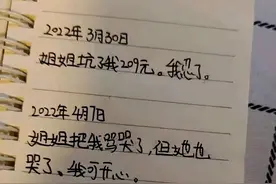 2022年3月30日
姐姐坑了我209元。我忍了。
2022年4月7日
姐姐把我骂哭了,但她也
哭了、我可开心。